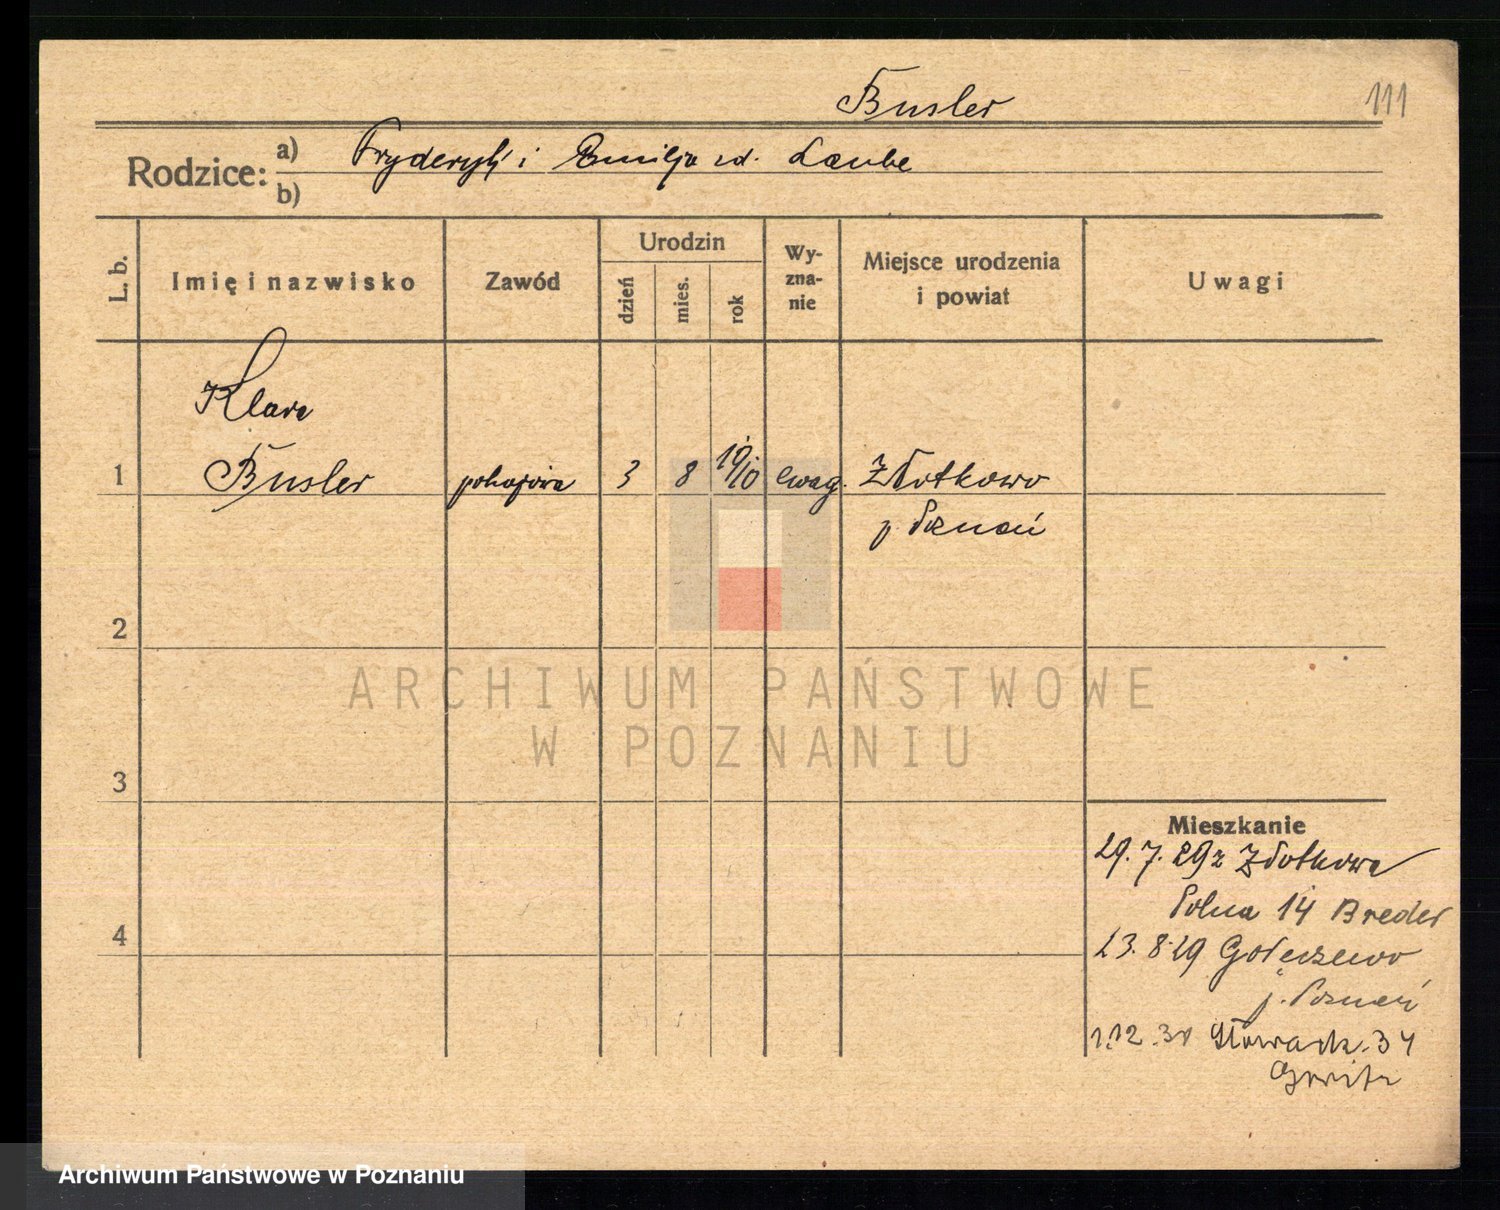 Busler
111
Rodzice: a) Fryderyk i Emilja zd. Laube
b)
L. b. Imię i nazwisko Zawód Urodzin dzień mies. rok Wy-zna-nie Miejsce urodzenia i powiat Uwagi
Klara
1 Busler pokojowa 3 8 1910 ewag. Złotkowo
p. Poznań
2
ARCHIWUM PAŃSTWOWE
W POZNANIU
3
Mieszkanie
29. 7. 29 z Złotkowa
Polna 14 Breder
4
23. 8. 29 Gołęczewo
p. Poznań
1.12.30 Słowack. 34
Archiwum Państwowe w Poznaniu